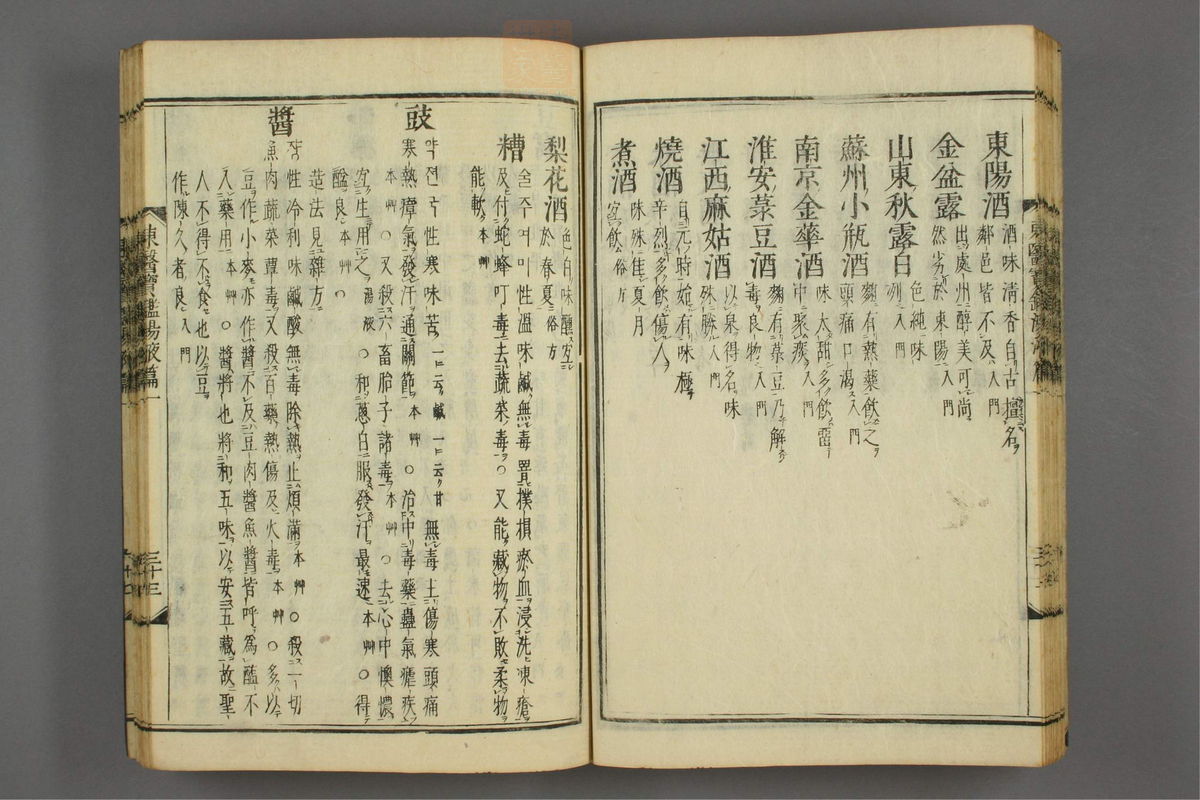 東陽酒 酒味清香自古擅名ヲ
鄰邑皆不及 入門
金盆露 出處州醇美可尚
然劣於東陽 入門
山東秋露白 色純味
列 入門
蘇州小瓶酒 麴有熱藥飮之ヲ
頭痛口渴 入門
南京金華酒 味太甜多飮留
中聚痰 入門
淮安菉豆酒 麴有菉豆乃解
毒良物 入門
江西麻姑酒 以泉得名味
殊勝 入門
燒酒 自元時始有味極
辛烈多飮傷人
煮酒 味殊佳夏月
宜飮 俗方
梨花酒 色白味醲宜
於春夏 俗方
糟 술주여미性溫味鹹無毒罯撲損瘀血浸洗凍瘡
及付蛇蜂叮毒去蔬菜毒○又能藏物不敗柔物
能軟 本艸
豉 약젼국性寒味苦 一云鹹 一云甘 無毒主傷寒頭痛
寒熱瘴氣發汗通關節 本艸 ○治中毒藥蠱氣瘧疾
本艸 ○又殺六畜胎子諸毒 本艸 ○去心中懊憹
宜生用之 湯液 ○和葱白服發汗最速 本艸 ○得
醢良 本艸 ○
造法見雜方
醬 쟝性冷利味鹹酸無毒除熱止煩滿 本艸 ○殺一切
魚肉蔬菜蕈毒又殺百藥熱傷及火毒 本艸 ○多以
豆作小麥亦作醬不及豆肉醬魚醬皆呼爲醢不
入藥用 本艸 ○醬將也將和五味以安五藏故聖
人不得不食也以豆
作陳久者良 入門
東醫寶鑑湯液篇一
三十三